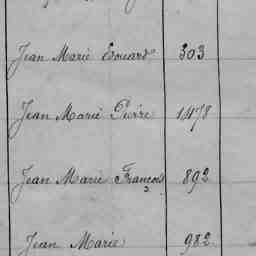 Jean Marie Edouard 303
Jean Marie Pierre 1478
Jean Marie François 892
Jean Marie 982